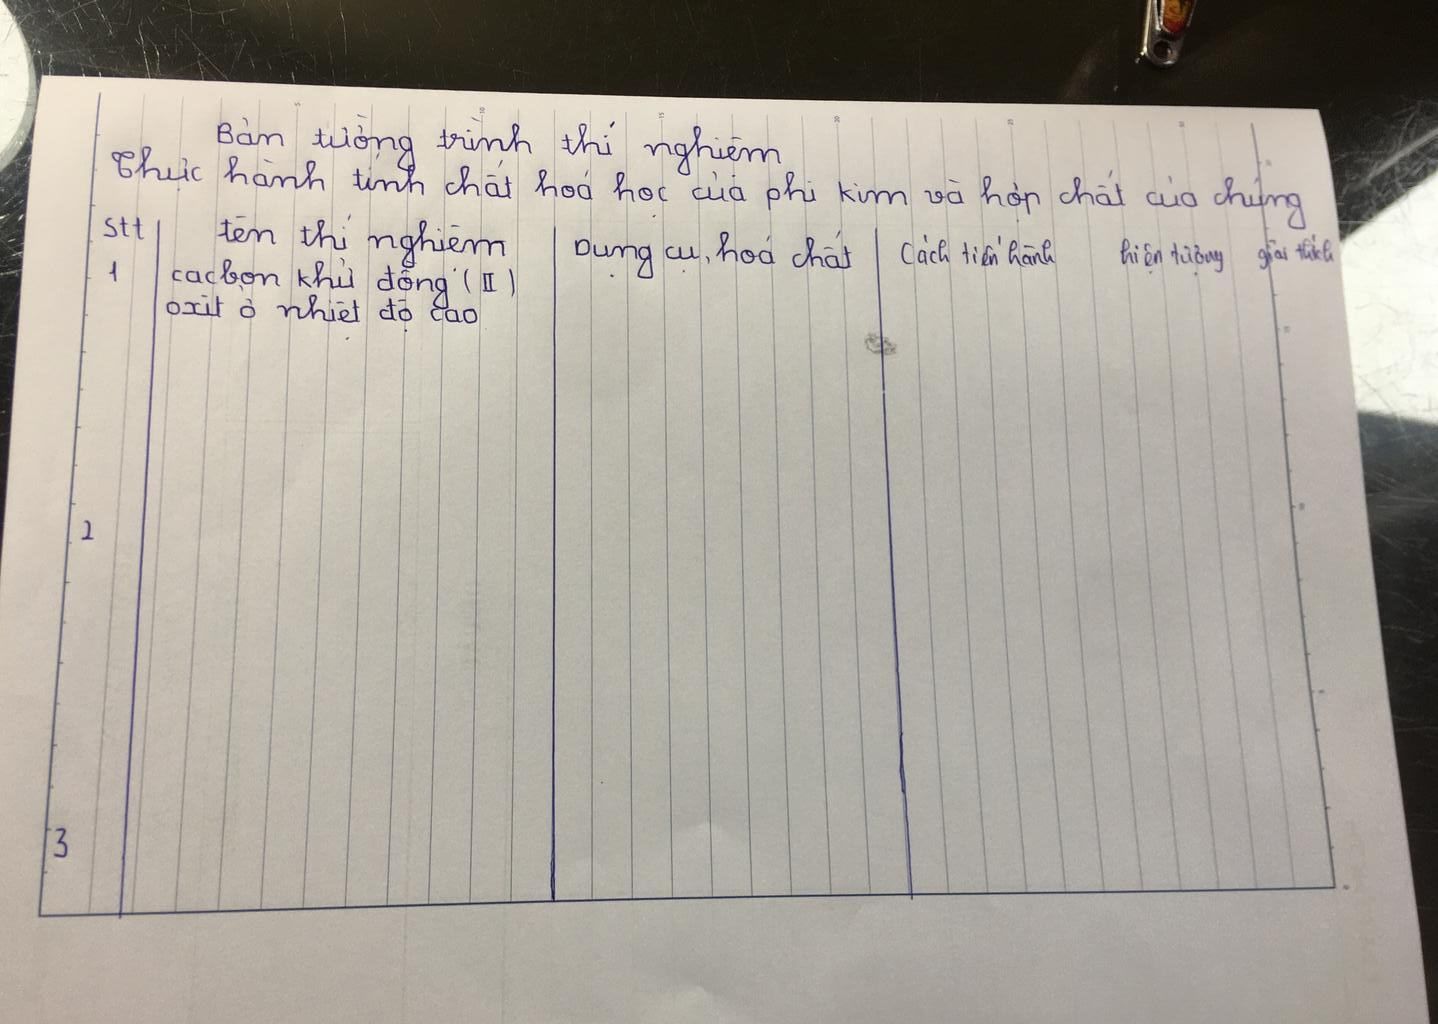 Bản tường trình thí nghiệm
Thực hành tính chất hoá học của phi kim và hợp chất của chúng
Stt tên thí nghiệm Dụng cụ, hoá chất Cách tiến hành hiện tượng giải thích
1 cacbon khử đồng (II)
oxit ở nhiệt độ cao
2
3